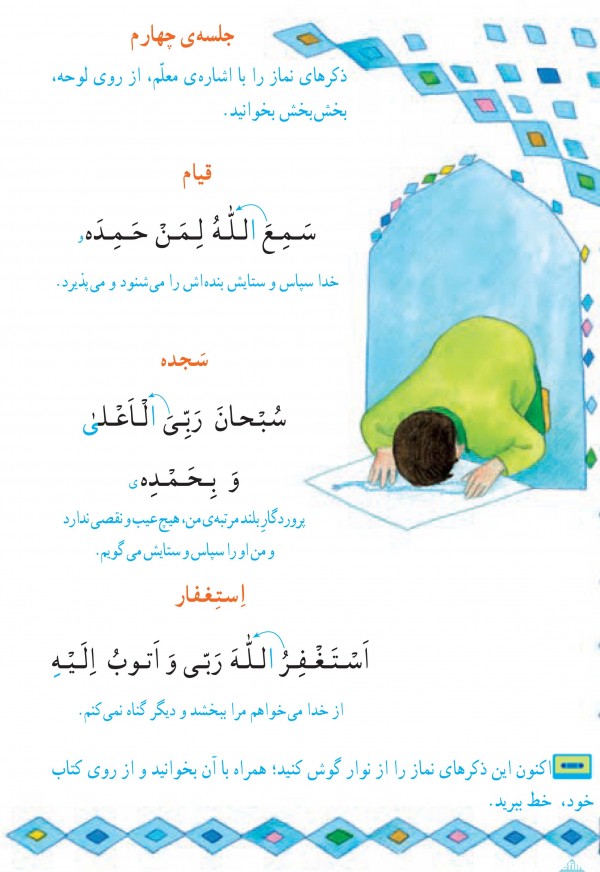 جلسه‌ی چهارم
ذکرهای نماز را با اشاره‌ی معلّم، از روی لوحه،
بخش‌بخش بخوانید.
قیام
سَمِعَ اللّٰهُ لِمَنْ حَمِدَه و
خدا سپاس و ستایش بنده‌اش را می‌شنود و می‌پذیرد.
سَجده
سُبْحانَ رَبِّیَ الْاَعْلیٰ
وَ بِحَمْدِه ی
پروردگارِ بلند مرتبه‌ی من، هیچ عیب و نقصی ندارد
و من او را سپاس و ستایش می‌گویم.
اِستِغفار
اَسْتَغْفِرُ اللّٰهَ رَبّی وَ اَتوبُ اِلَیْهِ
از خدا می‌خواهم مرا ببخشد و دیگر گناه نمی‌کنم.
اکنون این ذکرهای نماز را از نوار گوش کنید؛ همراه با آن بخوانید و از روی کتاب
خود، خط ببرید.